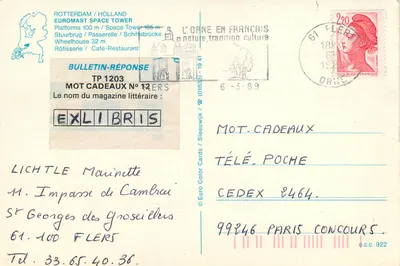 ROTTERDAM / HOLLAND
EUROMAST SPACE TOWER
Platforms 100 m / Space Tower 185 m
Stuurbrug / Passerelle / Schiffsbrücke
Wheelhouse 32 m
Rôtisserie / Café-Restaurant
L'ORNE EN FRANÇAIS
nature, tradition, culture
FLERS
6-5-89
61 FLERS
ORNE
2,20
BULLETIN-RÉPONSE
TP 1203
MOT CADEAUX Nº 12
Le nom du magazine littéraire :
EXLIBRIS
LICHTLE Marinette
11. Impasse de Cambrai
St Georges des Groseillers
61.100 FLERS
Tel. 33.65.40.36.
© Euro Color Cards / Sleeuwijk / (01833) - 19 41
MOT. CADEAUX
TÉLÉ. POCHE
CEDEX 2464.
99246 PARIS CONCOURS.
e.c.c. 922